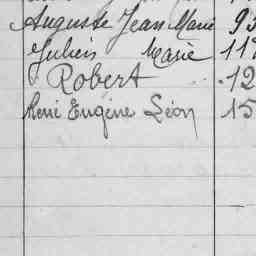 Auguste Jean Marie 93
Julien Marie 117
Robert 12
René Eugène Léon 15